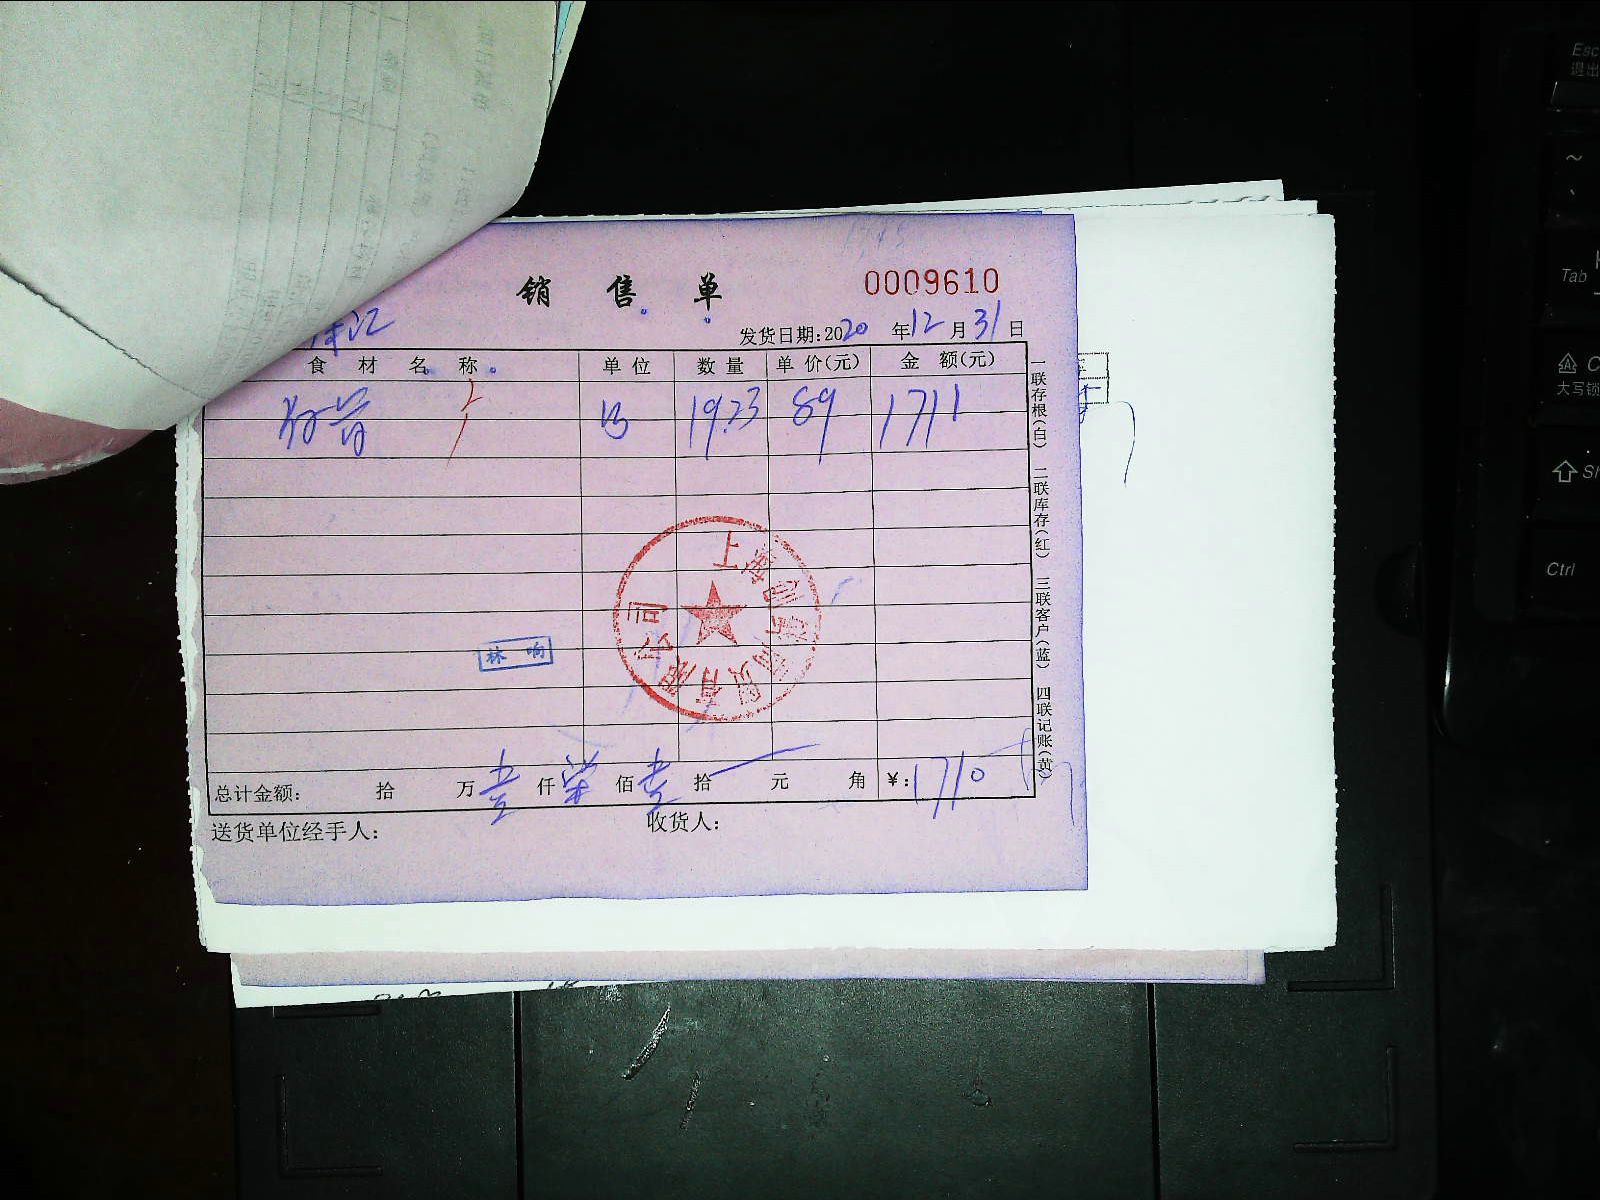 销售单
0009610
发货日期:2020年12月31日
食材名称 单位 数量 单价(元) 金额(元)
19.23 89 1711
上海
有限公司
林响
总计金额: 拾 万壹仟柒佰壹拾 元 角 ¥:1710
送货单位经手人: 收货人:
一联存根(白) 二联库存(红) 三联客户(蓝) 四联记账(黄)
Esc
退出
~
Tab
大写锁
Ctrl